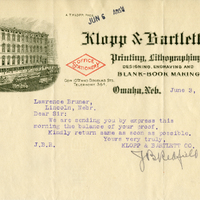 JUN 6
Klopp & Bartlett
Printing, Lithographing
DESIGNING, ENGRAVING AND
BLANK-BOOK MAKING
OFFICE
STATIONERS
TELEPHONE
Omaha, Neb.
June 5,
Lawrence Bruner,
Lincoln, Nebr.
Dear Sir:
We are sending you by express this
morning the balance of your proof.
Kindly return same as soon as possible.
Yours very truly,
J.B.R. KLOPP & BARTLETT CO.